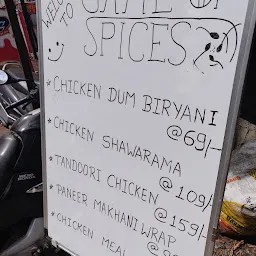 WELCOME TO
GAME OF
SPICES
* CHICKEN DUM BIRYANI
@69/-
* CHICKEN SHAWARAMA
@109/-
* TANDOORI CHICKEN
@159/-
* PANEER MAKHANI WRAP
* CHICKEN MEAL